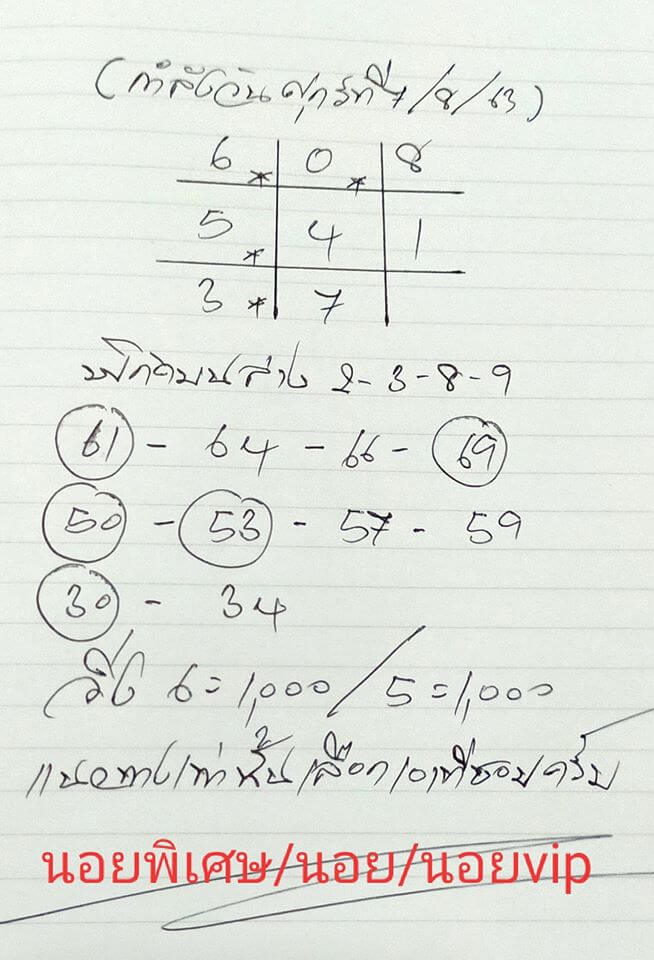 (กำลังวันศุกร์ที่ 7/8/63)
6 * 0 * 8
5 * 4 1
3 * 7
2-3-8-9
61 - 64 - 66 - 69
50 - 53 - 57 - 59
30 - 34
วิ่ง 6=1,000 / 5=1,000
แนวทางเท่านั้นเลือกเอาที่ชอบครับ
นอยพิเศษ/นอย/นอยvip